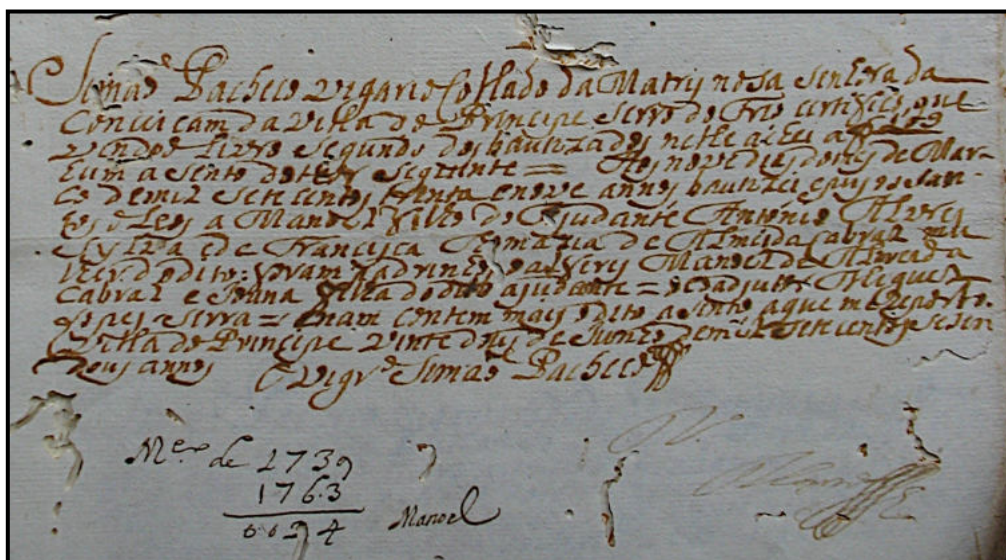 Simaõ Pacheco vigario Collado da Matris nosa senhora da
Conceicam da Villa do Principe serro do frio certifico que
vendo o livro segundo dos bautizados nelle a
hum asento do teor seguinte = Aos nove dias do mes de Mar-
co de mil setecentos trinta e nove annos bautizei e pus os san-
tos oleos a Manoel filho do Ajudante Antonio Alvres
e de Francisca Thomazia de Almeida Cabral
do dito: foram padrinhos o alferes Manoel de Almeida
Cabral e Joana filha do dito ajudante = O coadjutor
Lopes Serra = e nam contem mais o dito asento a que me reporto.
Villa do Principe vinte dous de Junho de mil e setecentos sesen
dous annos O Vigrº Simaõ Pacheco
de 1739
1763
0024 Manoel